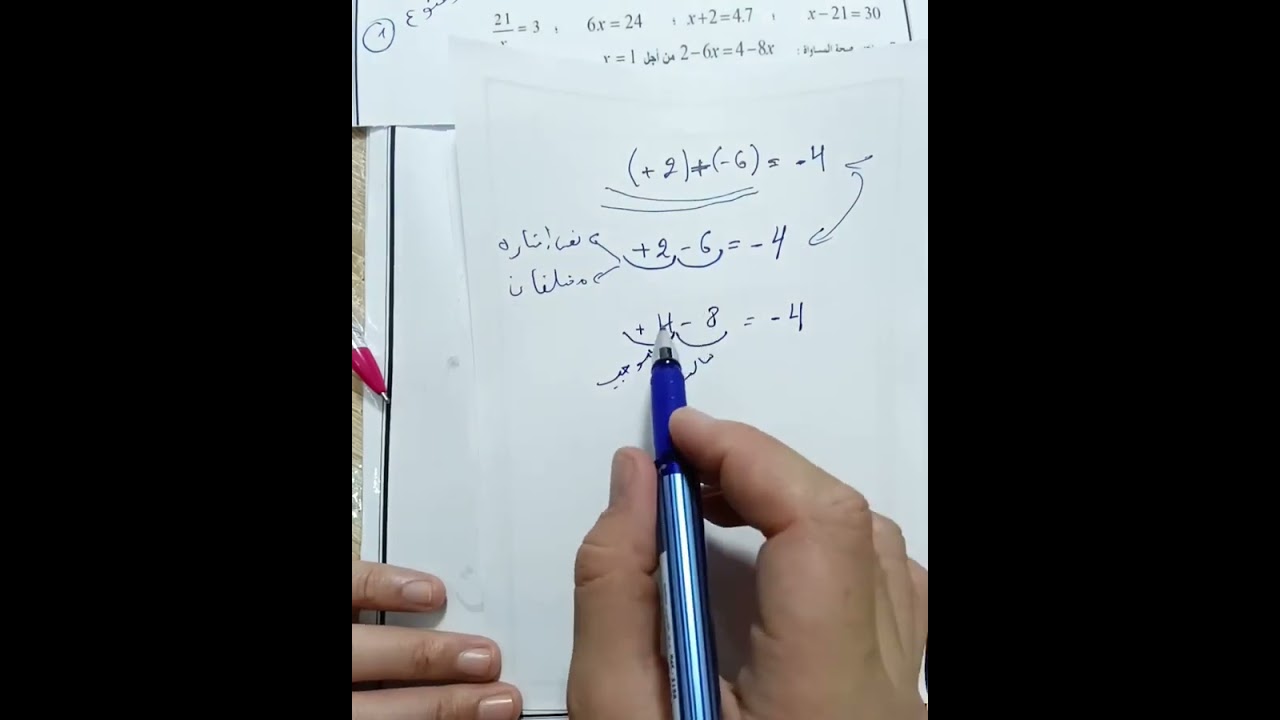 21/x = 3 ؛ 6x = 24 ؛ x+2=4.7 ؛ x−21=30
صحة المساواة : 2−6x=4−8x من أجل x=1
(+2)+(-6) = -4
+2-6 = -4
نفس اشاره
مختلفان
+4-8 = -4
موجب سالب